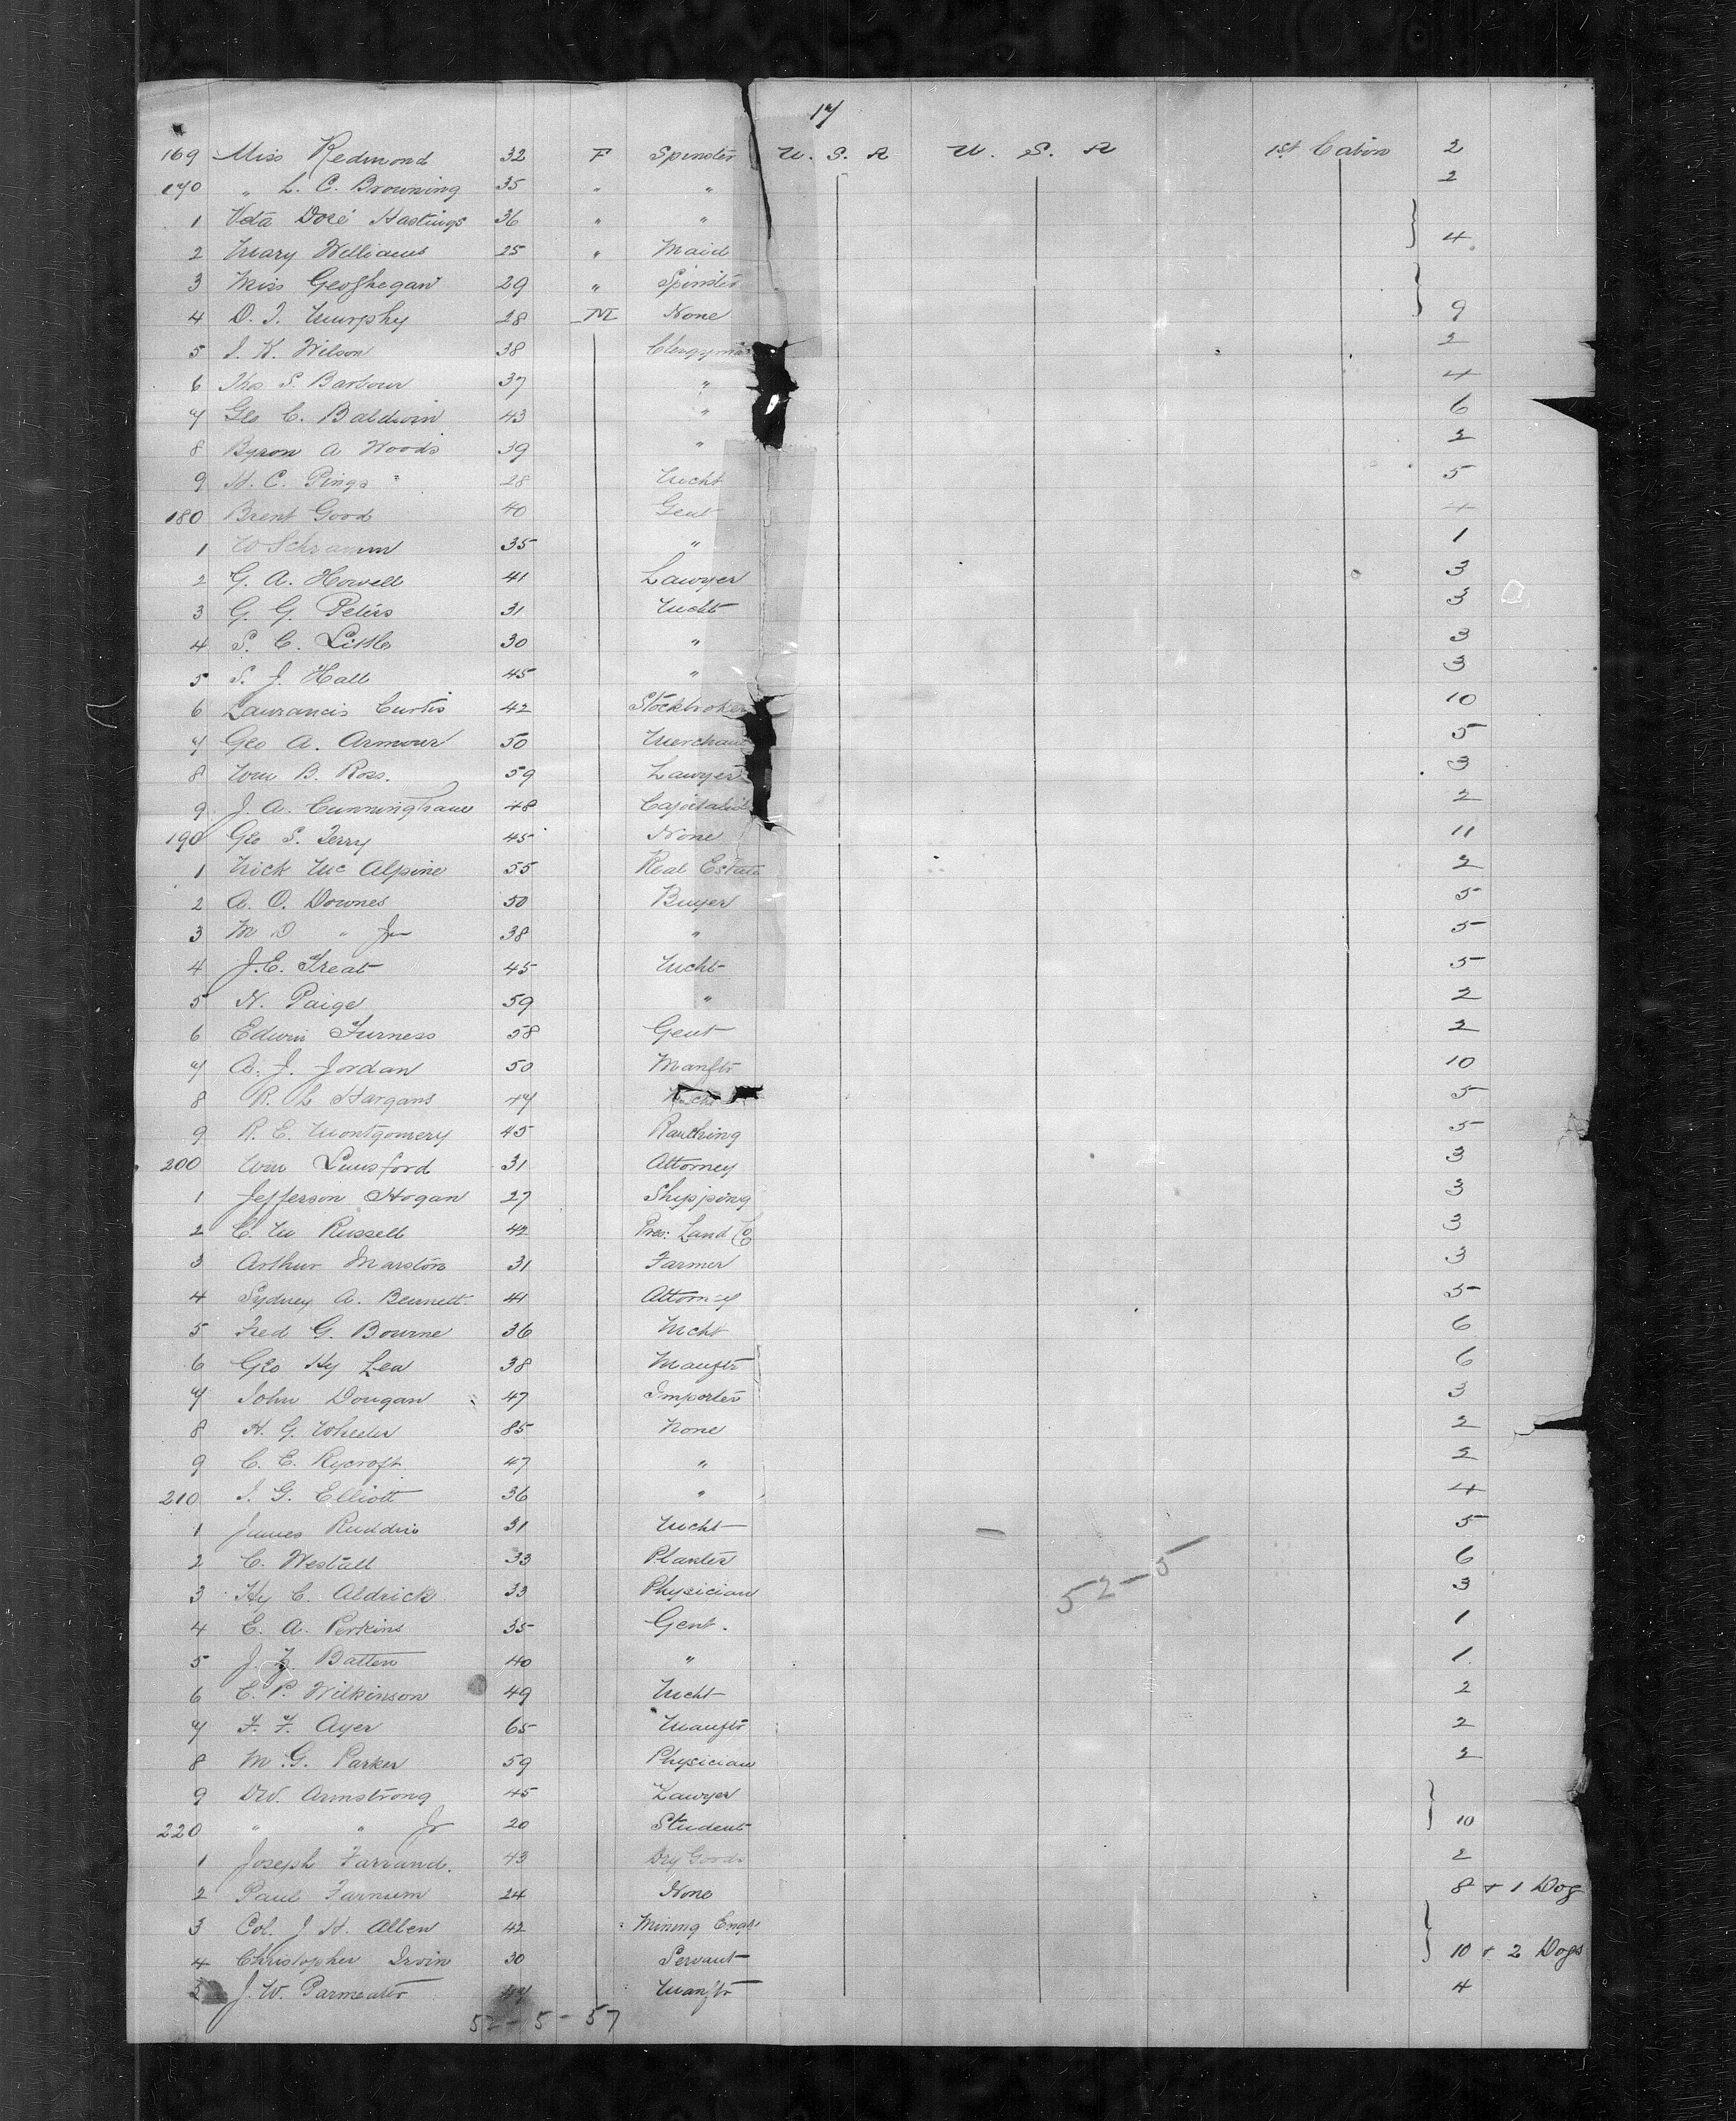 17
169 Miss Redmond 32 F Spinster U. S. A U. S. A 1st Cabin 2
170 " L. C. Browning 35 " " 2
1 Veta Doré Hastings 36 " " }
2 Mary Williams 25 " Maid 4
3 Miss Geoghegan 29 " Spinster }
4 D. J. Murphy 28 M None 9
5 J. K. Wilson 38 Clergyman 2
6 Thos S. Barbour 37 " 4
7 Geo C. Baldwin 43 " 6
8 Byron A Woods 39 " 2
9 H. C. Pinga 28 Mcht 5
180 Brent Good 40 Gent 4
1 W Schramm 35 " 1
2 G. A. Howell 41 Lawyer 3
3 G. G. Peters 31 Mcht 3
4 S. C. Little 30 " 3
5 S. J. Hall 45 " 3
6 Laurancis Curtis 42 Stockbroker 10
7 Geo A. Armour 50 Merchant 5
8 Wm B. Ross. 59 Lawyer 3
9 J. A. Cunningham 48 Capitalist 2
190 Geo S. Terry 45 None 11
1 Nick Mc Alpine 55 Real Estate 2
2 A. O. Downes 50 Buyer 5
3 M D " Jr 38 " 5
4 J. E. Treat 45 Mcht 5
5 N. Paige 59 " 2
6 Edwin Furness 58 Gent 2
7 A. J. Jordan 50 Manftr 10
8 R. L Hargans 47 5
9 R. E. Montgomery 45 Ranching 5
200 Wm Lunsford 31 Attorney 3
1 Jefferson Hogan 27 Shipping 3
2 C. W Russell 42 Pres: Land Co 3
3 Arthur Marston 31 Farmer 3
4 Sydney A. Bennett 41 Attorney 5
5 Fred G. Bourne 36 Mcht 6
6 Geo Hy Lea 38 Manftr 6
7 John Dougan 47 Importer 3
8 H. G. Wheeler 85 None 2
9 C. E. Rycroft 47 " 2
210 J. G. Elliott 36 " 4
1 James Ruddin 31 Mcht 5
2 C. Westall 33 Planter 6
3 Hy C. Aldrick 33 Physician 52-5 3
4 E. A. Perkins 35 Gent. 1
5 J. Batten 40 " 1
6 C. P. Wilkinson 49 Mcht 2
7 F. F. Ayer 65 Manftr 2
8 M. G. Parker 59 Physician 2
9 DW. Armstrong 45 Lawyer }
220 " " Jr 20 Student 10
1 Joseph Farrand. 43 Dry Goods 2
2 Paul Farnum 24 None 8 + 1 Dog
3 Col. J H. Allen 42 Mining Engr }
4 Christopher Irvin 30 Servant 10 + 2 Dogs
5 J. W. Parmeater 47 Manftr 4
52-5-57